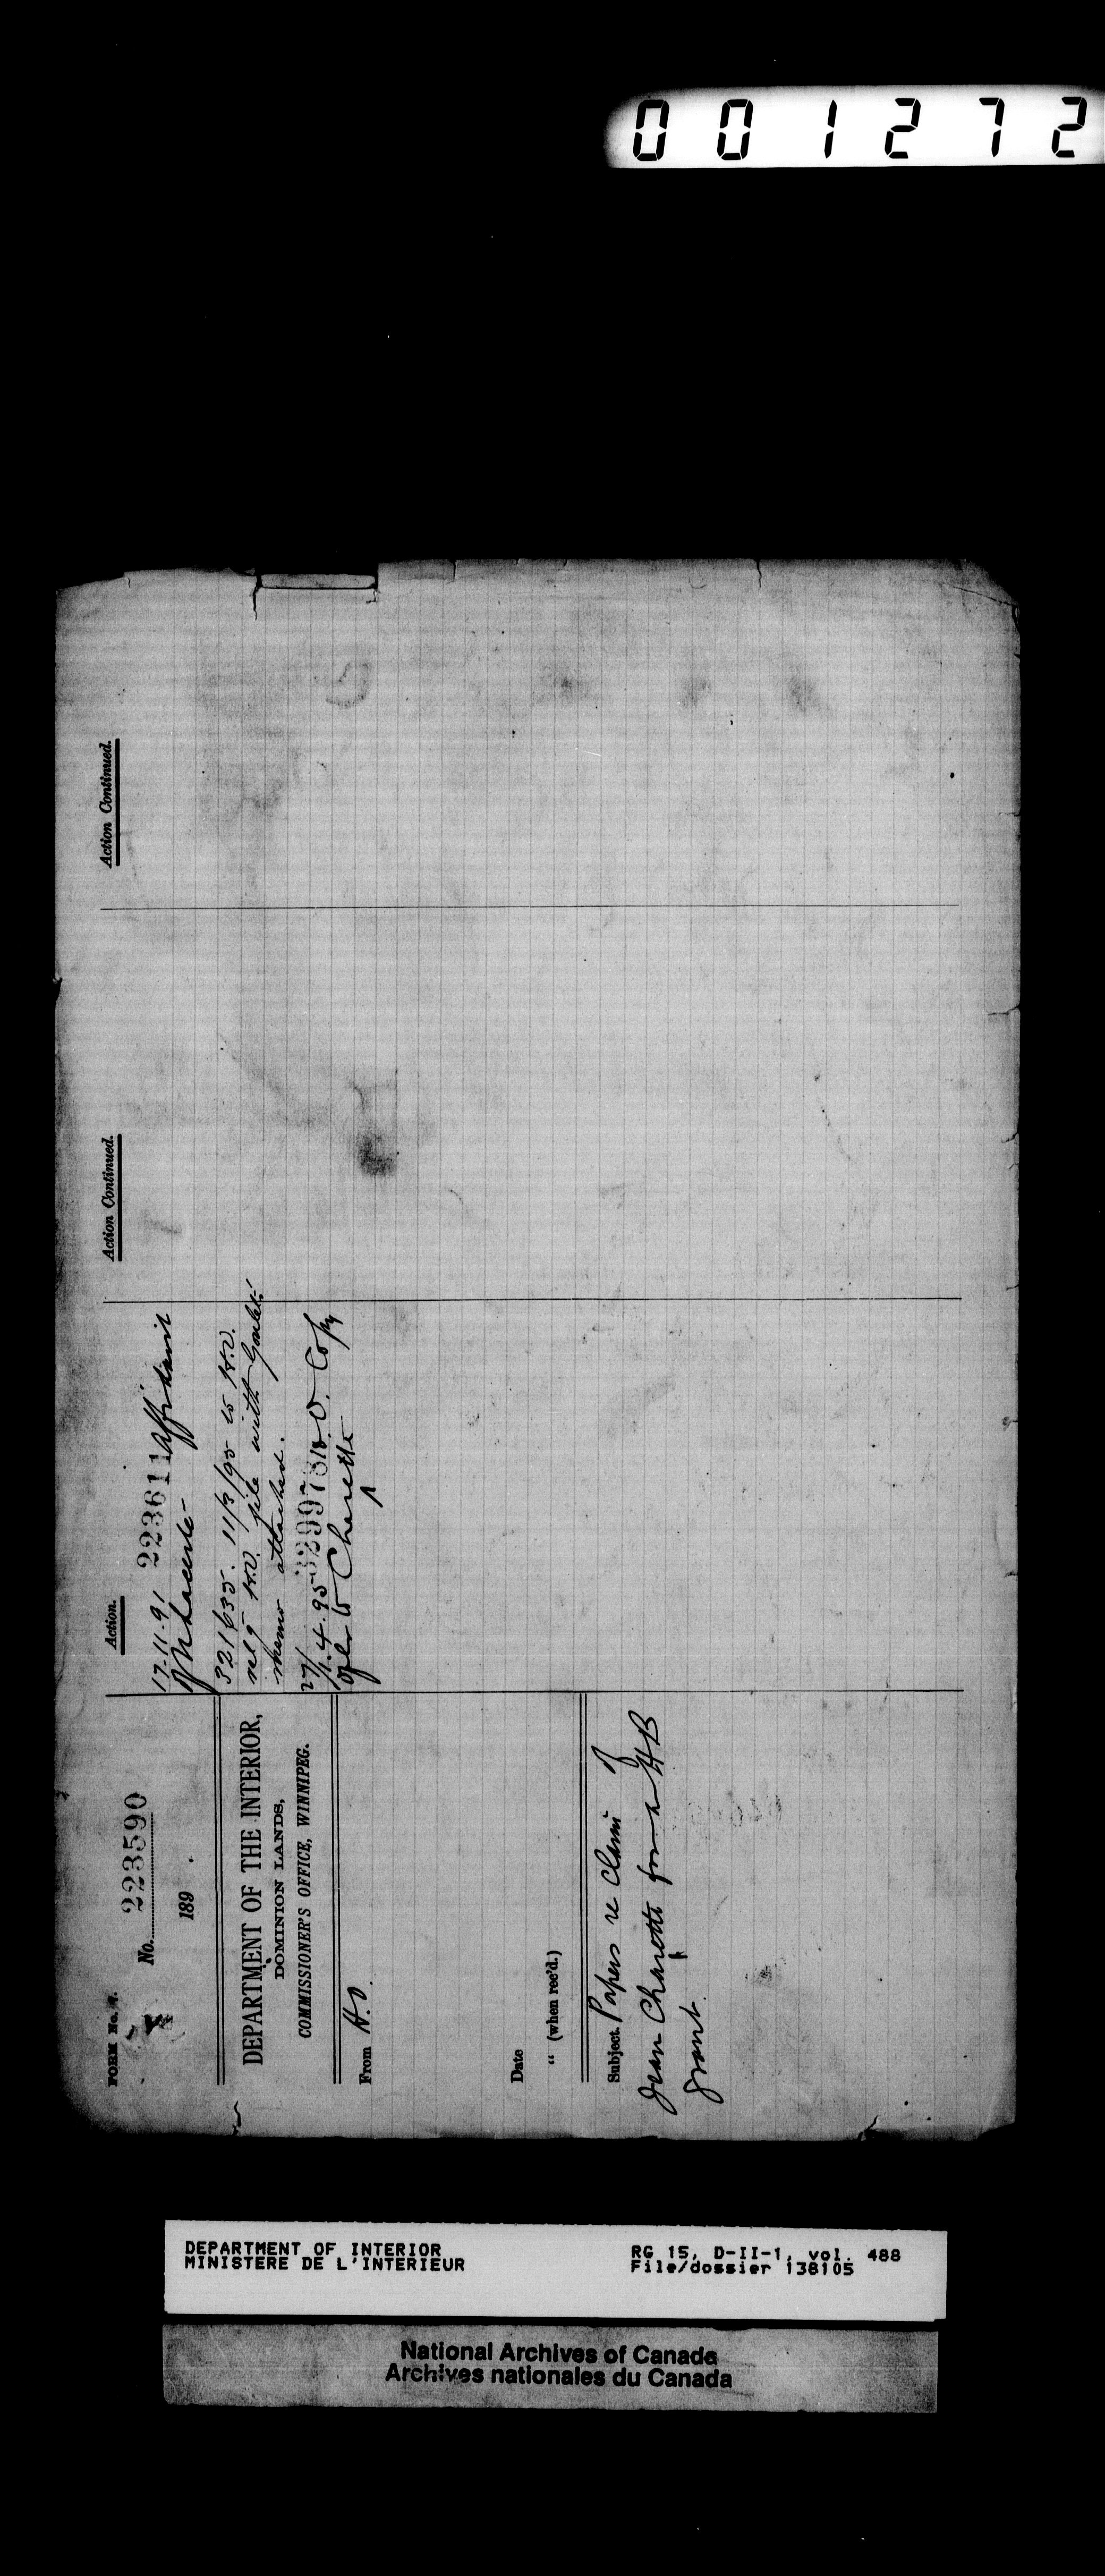 001272
FORM No. 
No. 223590
189 .
DEPARTMENT OF THE INTERIOR,
DOMINION LANDS,
COMMISSIONER'S OFFICE, WINNIPEG.
From H.O.
Date
" (when rec'd.)
Subject. Papers re Claim of
Jean Charette for a HB
grant.
Action.
17-11-91 223611 Affidavit
321635. 11/3/95 to H.O.
file with Goulet's
memo attached.
27/1.4.95 329978 H.O. Copy
to Charette
Action Continued.
Action Continued.
DEPARTMENT OF INTERIOR
MINISTERE DE L'INTERIEUR
RG 15, D-II-1, vol. 488
File/dossier 138105
National Archives of Canada
Archives nationales du Canada